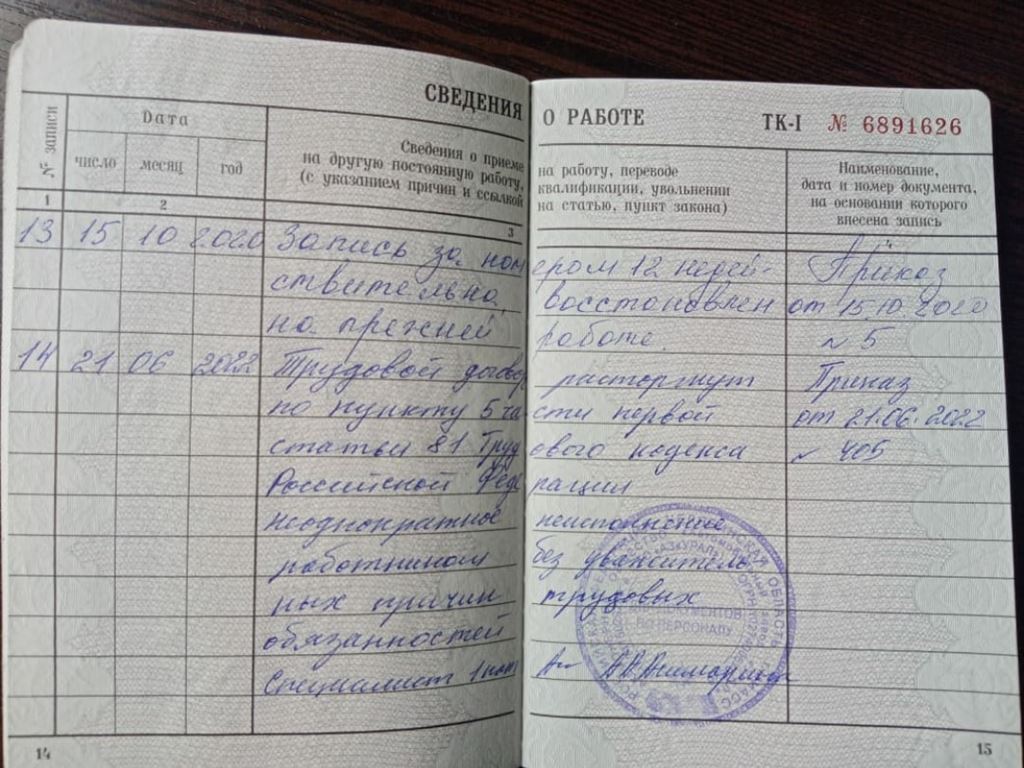 СВЕДЕНИЯ О РАБОТЕ ТК-I № 6891626
№ записи
Дата
число месяц год
Сведения о приеме на работу, переводе
на другую постоянную работу, квалификации, увольнении
(с указанием причин и ссылкой на статью, пункт закона)
Наименование,
дата и номер документа,
на основании которого
внесена запись
1 2 3 4
13 15 10 2020 Запись за номером 12 недей- Приказ
ствительна, восстановлен от 15.10.2020
на прежней работе. № 5
14 21 06 2022 Трудовой договор расторгнут Приказ
по пункту 5 части первой от 21.06.2022
статьи 81 Трудового кодекса № 405
Российской Федерации
неоднократное неисполнение
работником без уважитель
ных причин трудовых
обязанностей
Специалист
14
15
ОБЛАСТЬ
ПО ПЕРСОНАЛУ